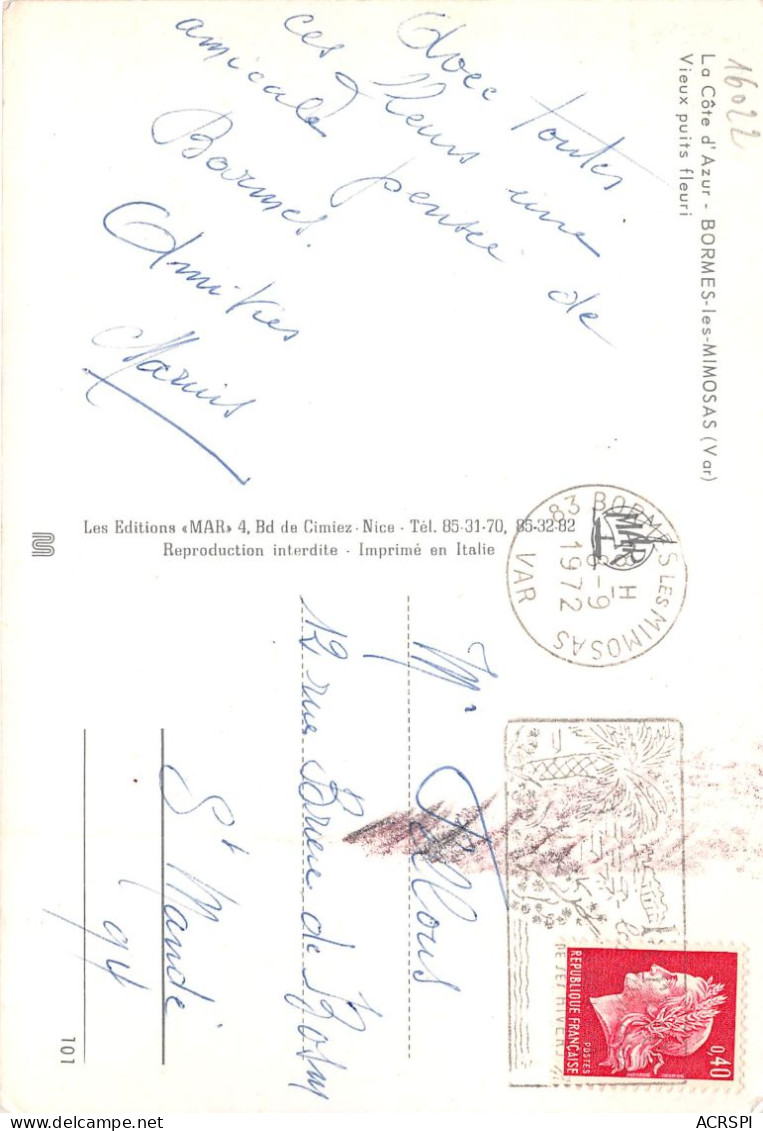 16022
La Côte d'Azur - BORMES-les-MIMOSAS (Var)
Vieux puits fleuri
Avec toutes
ces fleurs une
amicale pensée de
Bormes.
Amitiés
Les Editions «MAR» 4, Bd de Cimiez - Nice - Tél. 85-31-70, 85-32-82
Reproduction interdite - Imprimé en Italie
MAR
83 BORMES LES MIMOSAS
18 H
8-9
1972
VAR
Mr
12 rue de
St Mandé
94
REPUBLIQUE FRANÇAISE
POSTES
0,40
101
ACRSPI